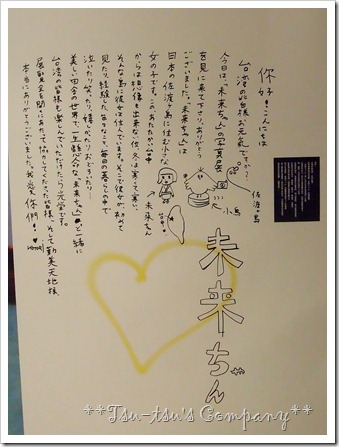 你好！こんにちは
台湾の皆様お元気ですか？
今日は、「未来ちゃん」の写真展
を見に来て下さりありがとう
ございます。「未来ちゃん」は
日本の佐渡ヶ島に住む小さな
女の子です。このあたたかい台中
からは想像も出来ない位、冬は寒くて寒い、
そんな島に彼女は住んでいます。そこで彼女が、初めて
見たり、経験した毎日のこと。毎日の暮らしの中で
泣いたり、笑ったり、怒ったり、おどろいたり…
美しい の世界で、一生懸命な"未来ちゃん"と一緒に
台湾の皆様も楽しんでいただけたら です。
展覧会を開くにあたって協力してくださった皆様、そして勤美天地様、
本当にありがとうございました。我愛你們！
佐渡ヶ島
小島
台中
未来ちゃん
未来ちゃん
**Tsu-tsu's Company**